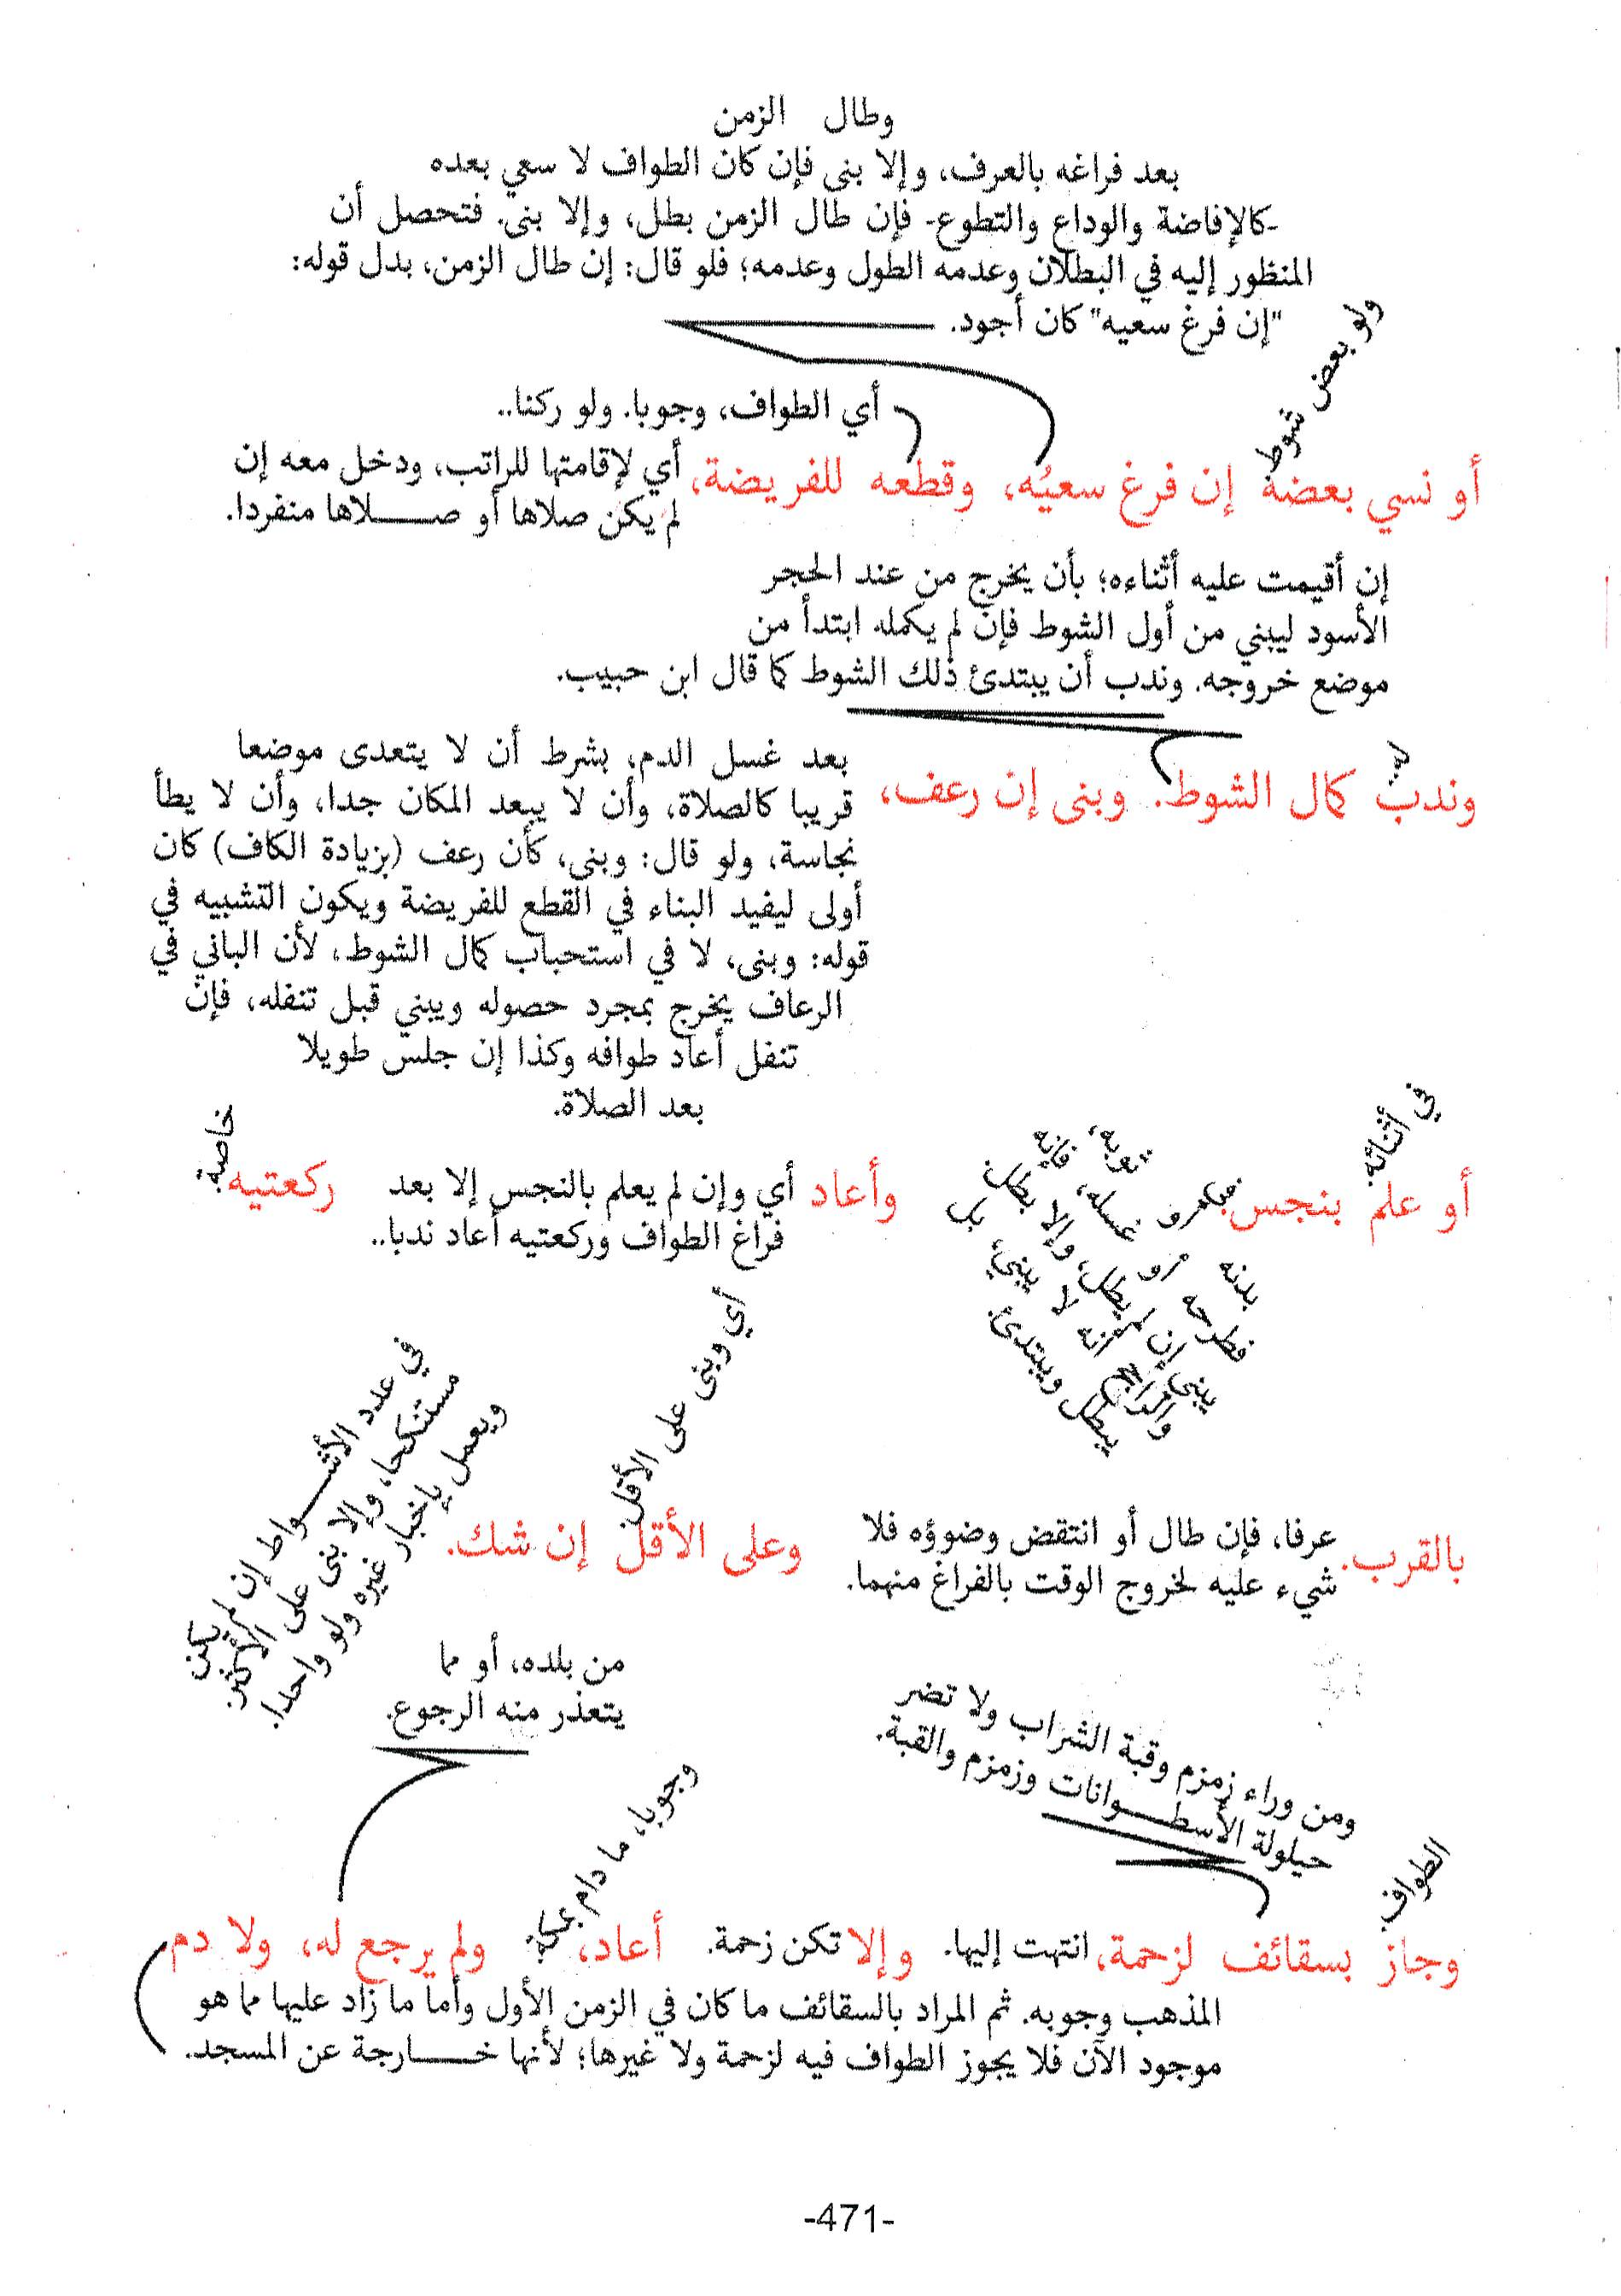 وطال الزمن
بعد فراغه بالعرف، وإلا بنى فإن كان الطواف لا سعي بعده
-كالإفاضة والوداع والتطوع- فإن طال الزمن بطل، وإلا بنى. فتحصل أن
المنظور إليه في البطلان وعدمه الطول وعدمه؛ فلو قال: إن طال الزمن، بدل قوله:
"إن فرغ سعيه" كان أجود.
ولو بعض شوط
أي الطواف، وجوبا. ولو ركنا..
أو نسي بعضه إن فرغ سعيُه، وقطعه للفريضة،
أي لإقامتها للراتب، ودخل معه إن
لم يكن صلاها أو صـلاها منفردا.
إن أقيمت عليه أثناءه؛ بأن يخرج من عند الحجر
الأسود ليبني من أول الشوط فإن لم يكمله ابتدأ من
موضع خروجه. وندب أن يبتدئ ذلك الشوط كما قال ابن حبيب.
له.
وندب كمال الشوط. وبنى إن رعف،
بعد غسل الدم، بشرط أن لا يتعدى موضعا
قريبا كالصلاة، وأن لا يبعد المكان جدا، وأن لا يطأ
نجاسة، ولو قال: وبنى، كأن رعف (بزيادة الكاف) كان
أولى ليفيد البناء في القطع للفريضة ويكون التشبيه في
قوله: وبنى، لا في استحباب كمال الشوط، لأن الباني في
الرعاف يخرج بمجرد حصوله ويبني قبل تنفله، فإن
تنفل أعاد طوافه وكذا إن جلس طويلا
بعد الصلاة.
في أثنائه.
أو علم بنجس.
في بدنه أو ثوبه،
فطرحه أو غسله، فإنه
يبني إن لم يطل، وإلا بطل
والراجح أنه لا يبني، بل
يبطل ويبتدئ.
وأعاد
أي وإن لم يعلم بالنجس إلا بعد
فراغ الطواف وركعتيه أعاد ندبا..
ركعتيه
خاصة.
بالقرب.
عرفا، فإن طال أو انتقض وضوؤه فلا
شيء عليه لخروج الوقت بالفراغ منهما.
أي وبنى على الأقل.
وعلى الأقل إن شك.
في عدد الأشـواط إن لم يكن
مستنكحا، وإلا بنى على الأكثر.
ويعمل بإخبار غيره ولو واحدا.
من بلده، أو مما
يتعذر منه الرجوع.
ومن وراء زمزم وقبة الشراب ولا تضر
حيلولة الأسطـوانات وزمزم والقبة.
الطواف
وجوبا، ما دام بمكة.
وجاز بسقائف لزحمة، انتهت إليها. وإلا تكن زحمة. أعاد، ولم يرجع له، ولا دم
المذهب وجوبه. ثم المراد بالسقائف ما كان في الزمن الأول وأما ما زاد عليها مما هو
موجود الآن فلا يجوز الطواف فيه لزحمة ولا غيرها؛ لأنها خـارجة عن المسجد.
-471-